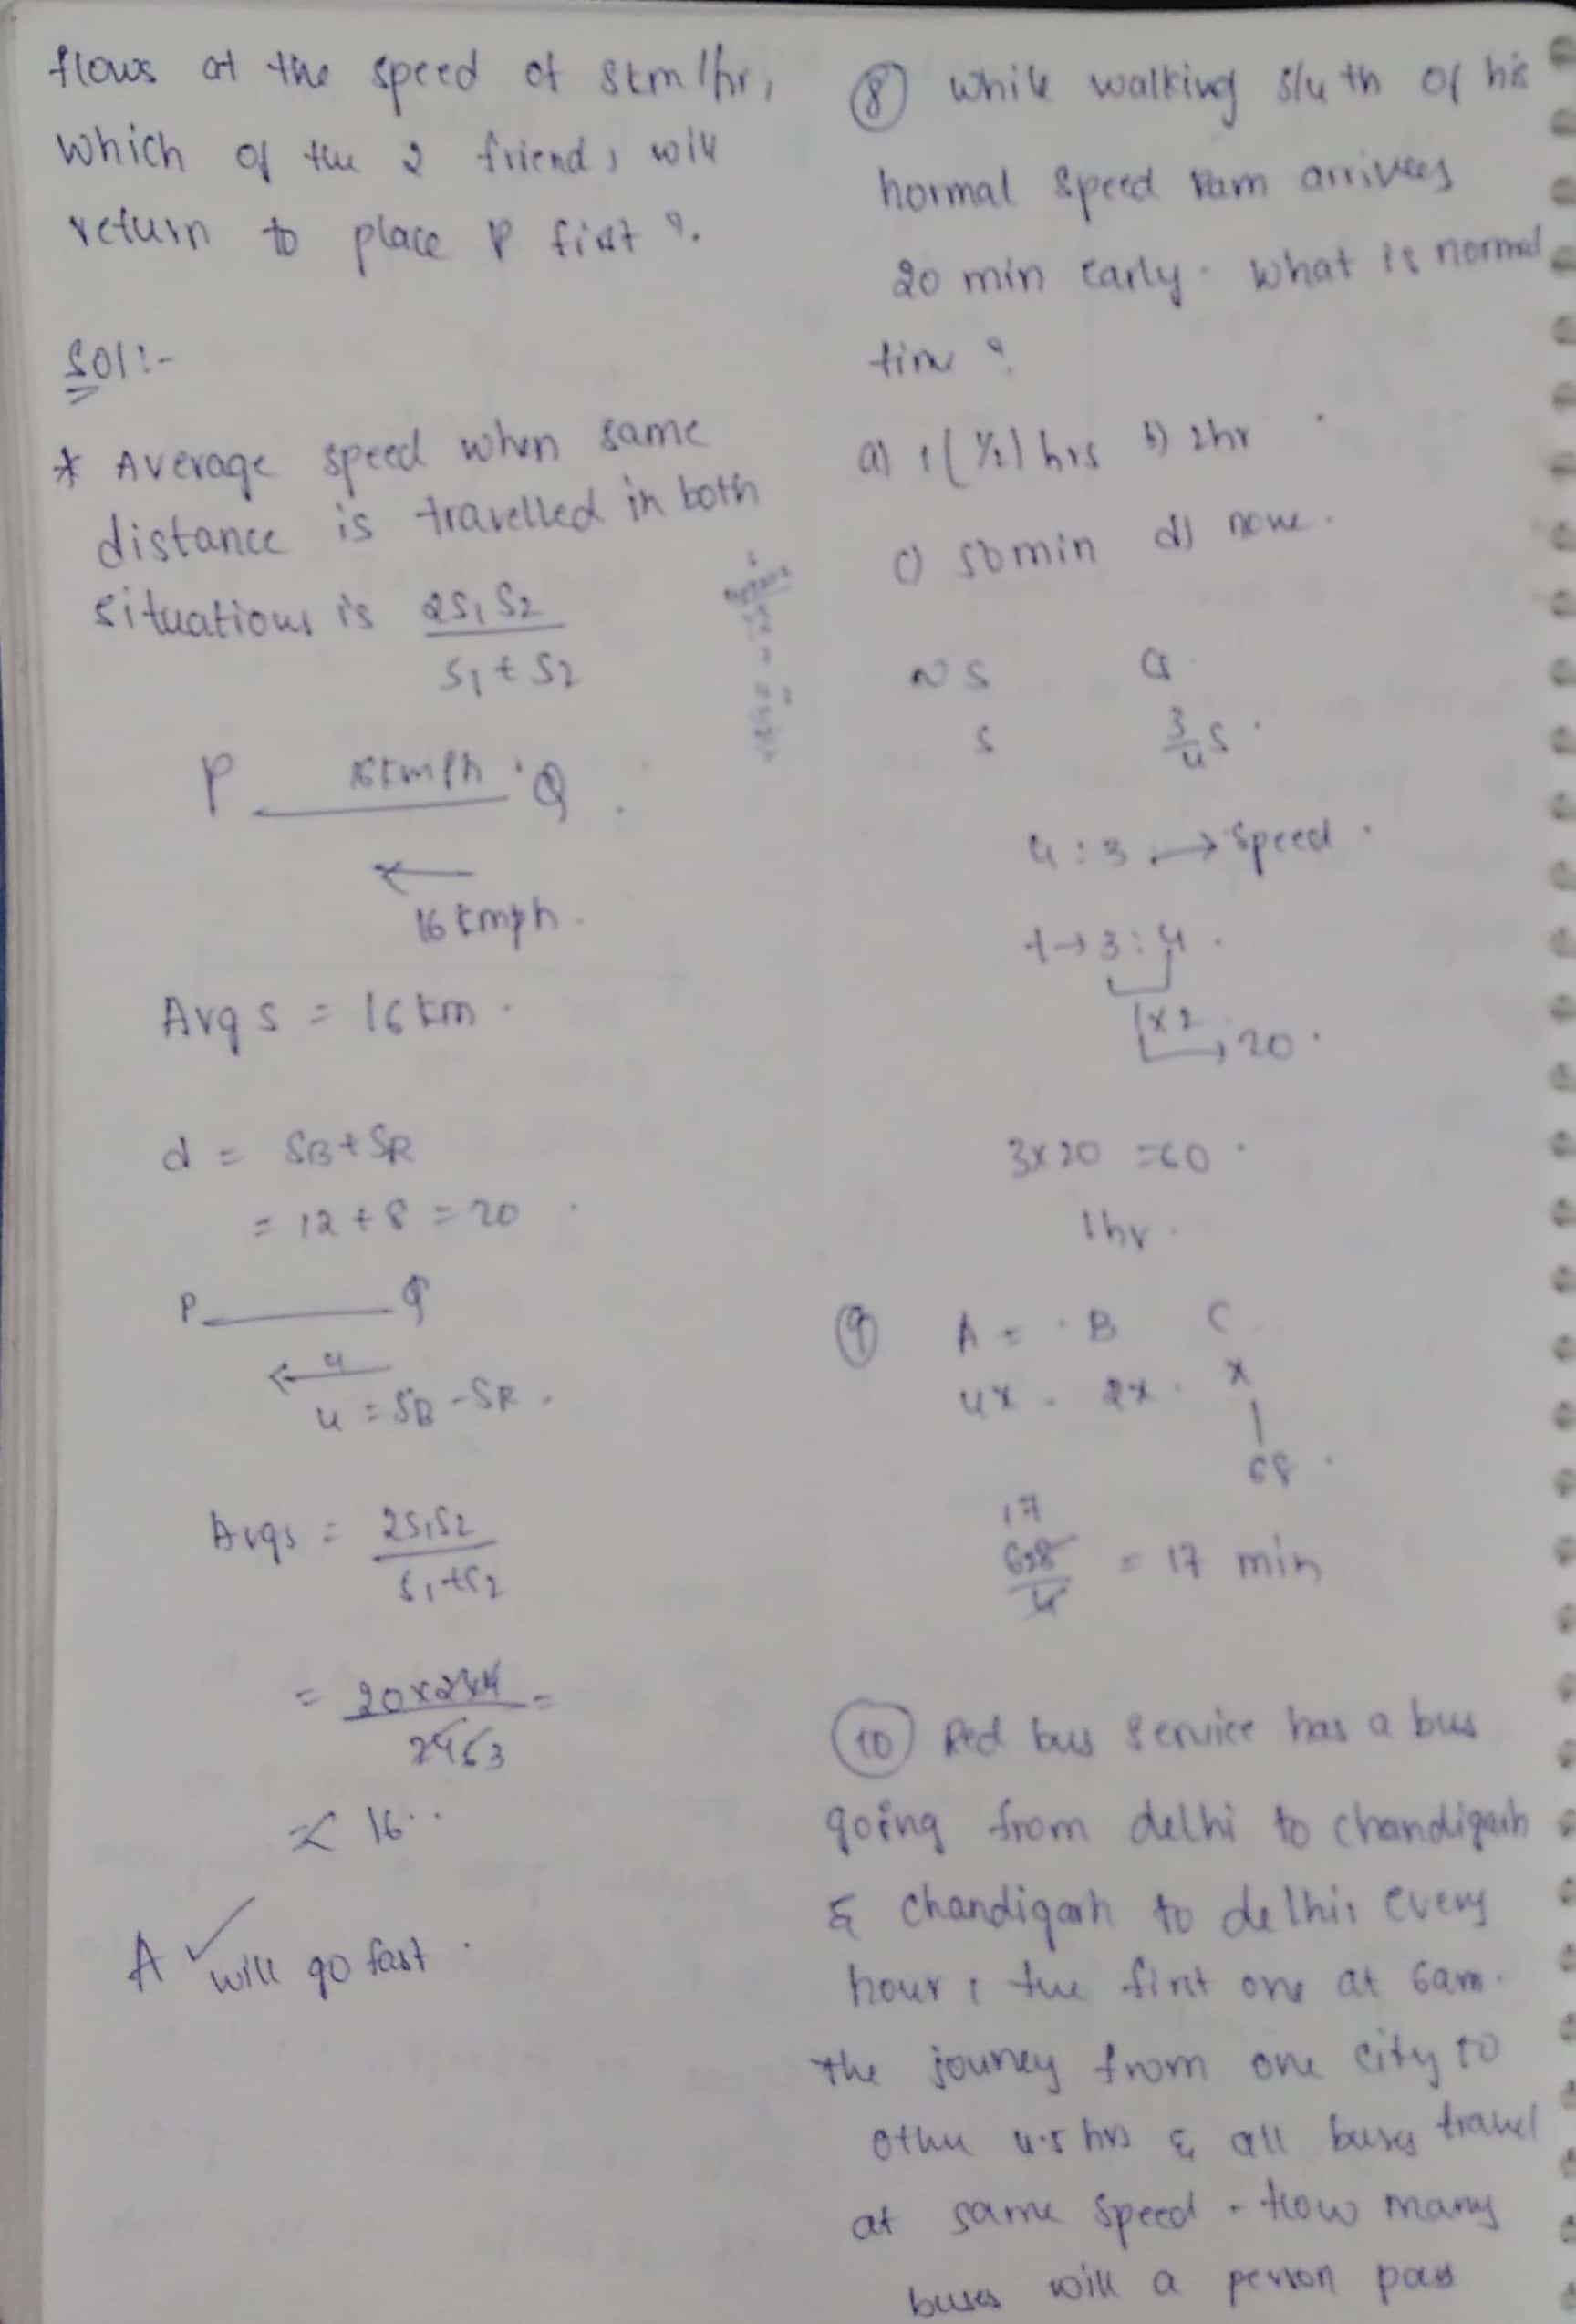 flows at the speed of 8km/hr,
which of the 2 friends will
return to place P first ?.
Sol:-
* Average speed when same
distance is travelled in both
situations is 2S1S2 / S1+S2
P 16kmph Q
16 kmph
Avg s = 16 km
d = SB+SR
= 12+8 = 20
P Q
4
4 = SB-SR
Avgs = 2S1S2 / S1+S2
= 20x2x4 / 24 =
16..
A ✓ will go fast
(8) while walking 5/4 th of his
normal speed Ram arrivees
20 min early. What is normal
time ?
a) 1(1/2) hrs b) 2hr
c) 50min d) none.
NS
S 3/4 S
4:3 → speed
t→3:4
1x2
→20
3x20 =60
1hr
(9) A = B C
4x 2x x
68
17
68 / 4 = 17 min
(10) Red bus service has a bus
going from delhi to chandigarh
& chandigarh to delhi, every
hour, the first one at 6am.
The jouney from one city to
other 4.5 hrs & all buses travel
at same speed. How many
buses will a person pass